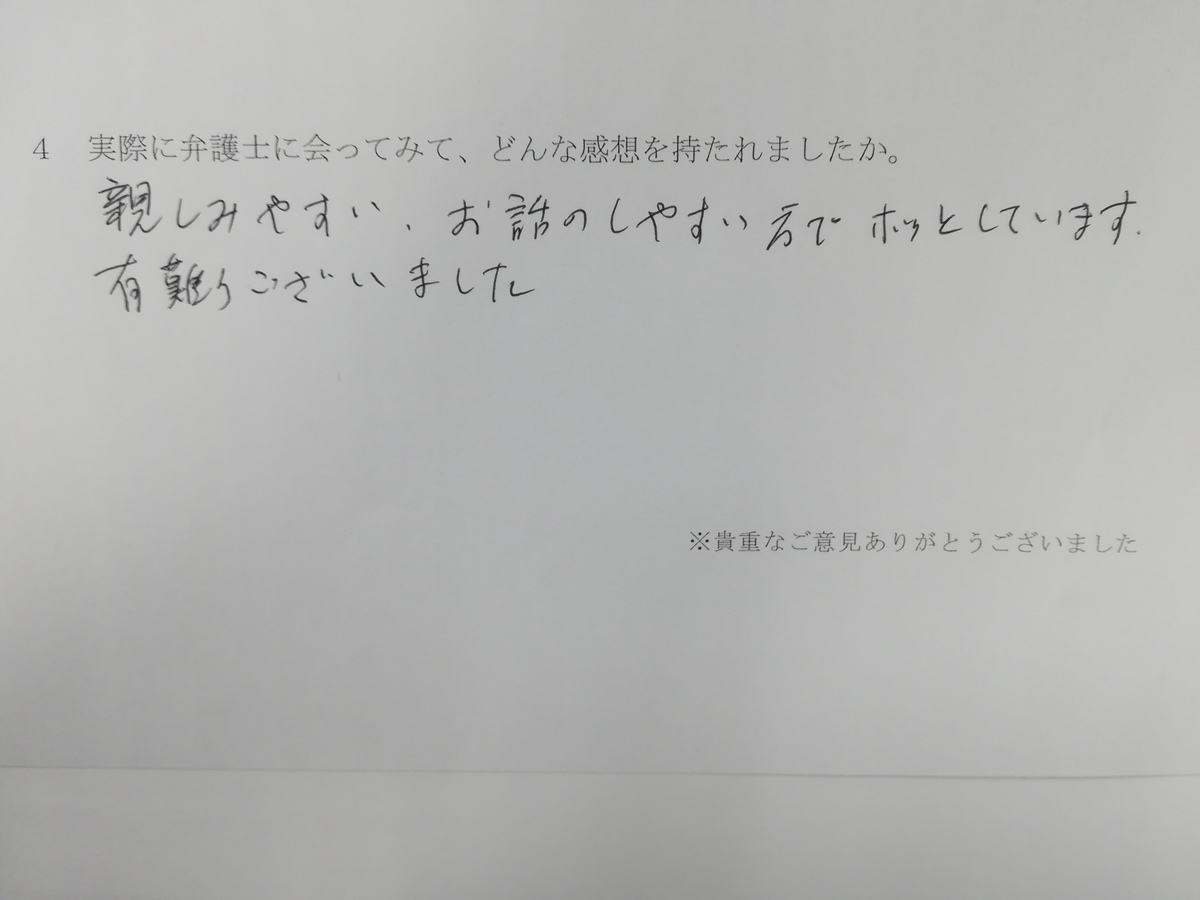 4 実際に弁護士に会ってみて、どんな感想を持たれましたか。
親しみやすい、お話のしやすい方でホッとしています.
有難うございました
※貴重なご意見ありがとうございました